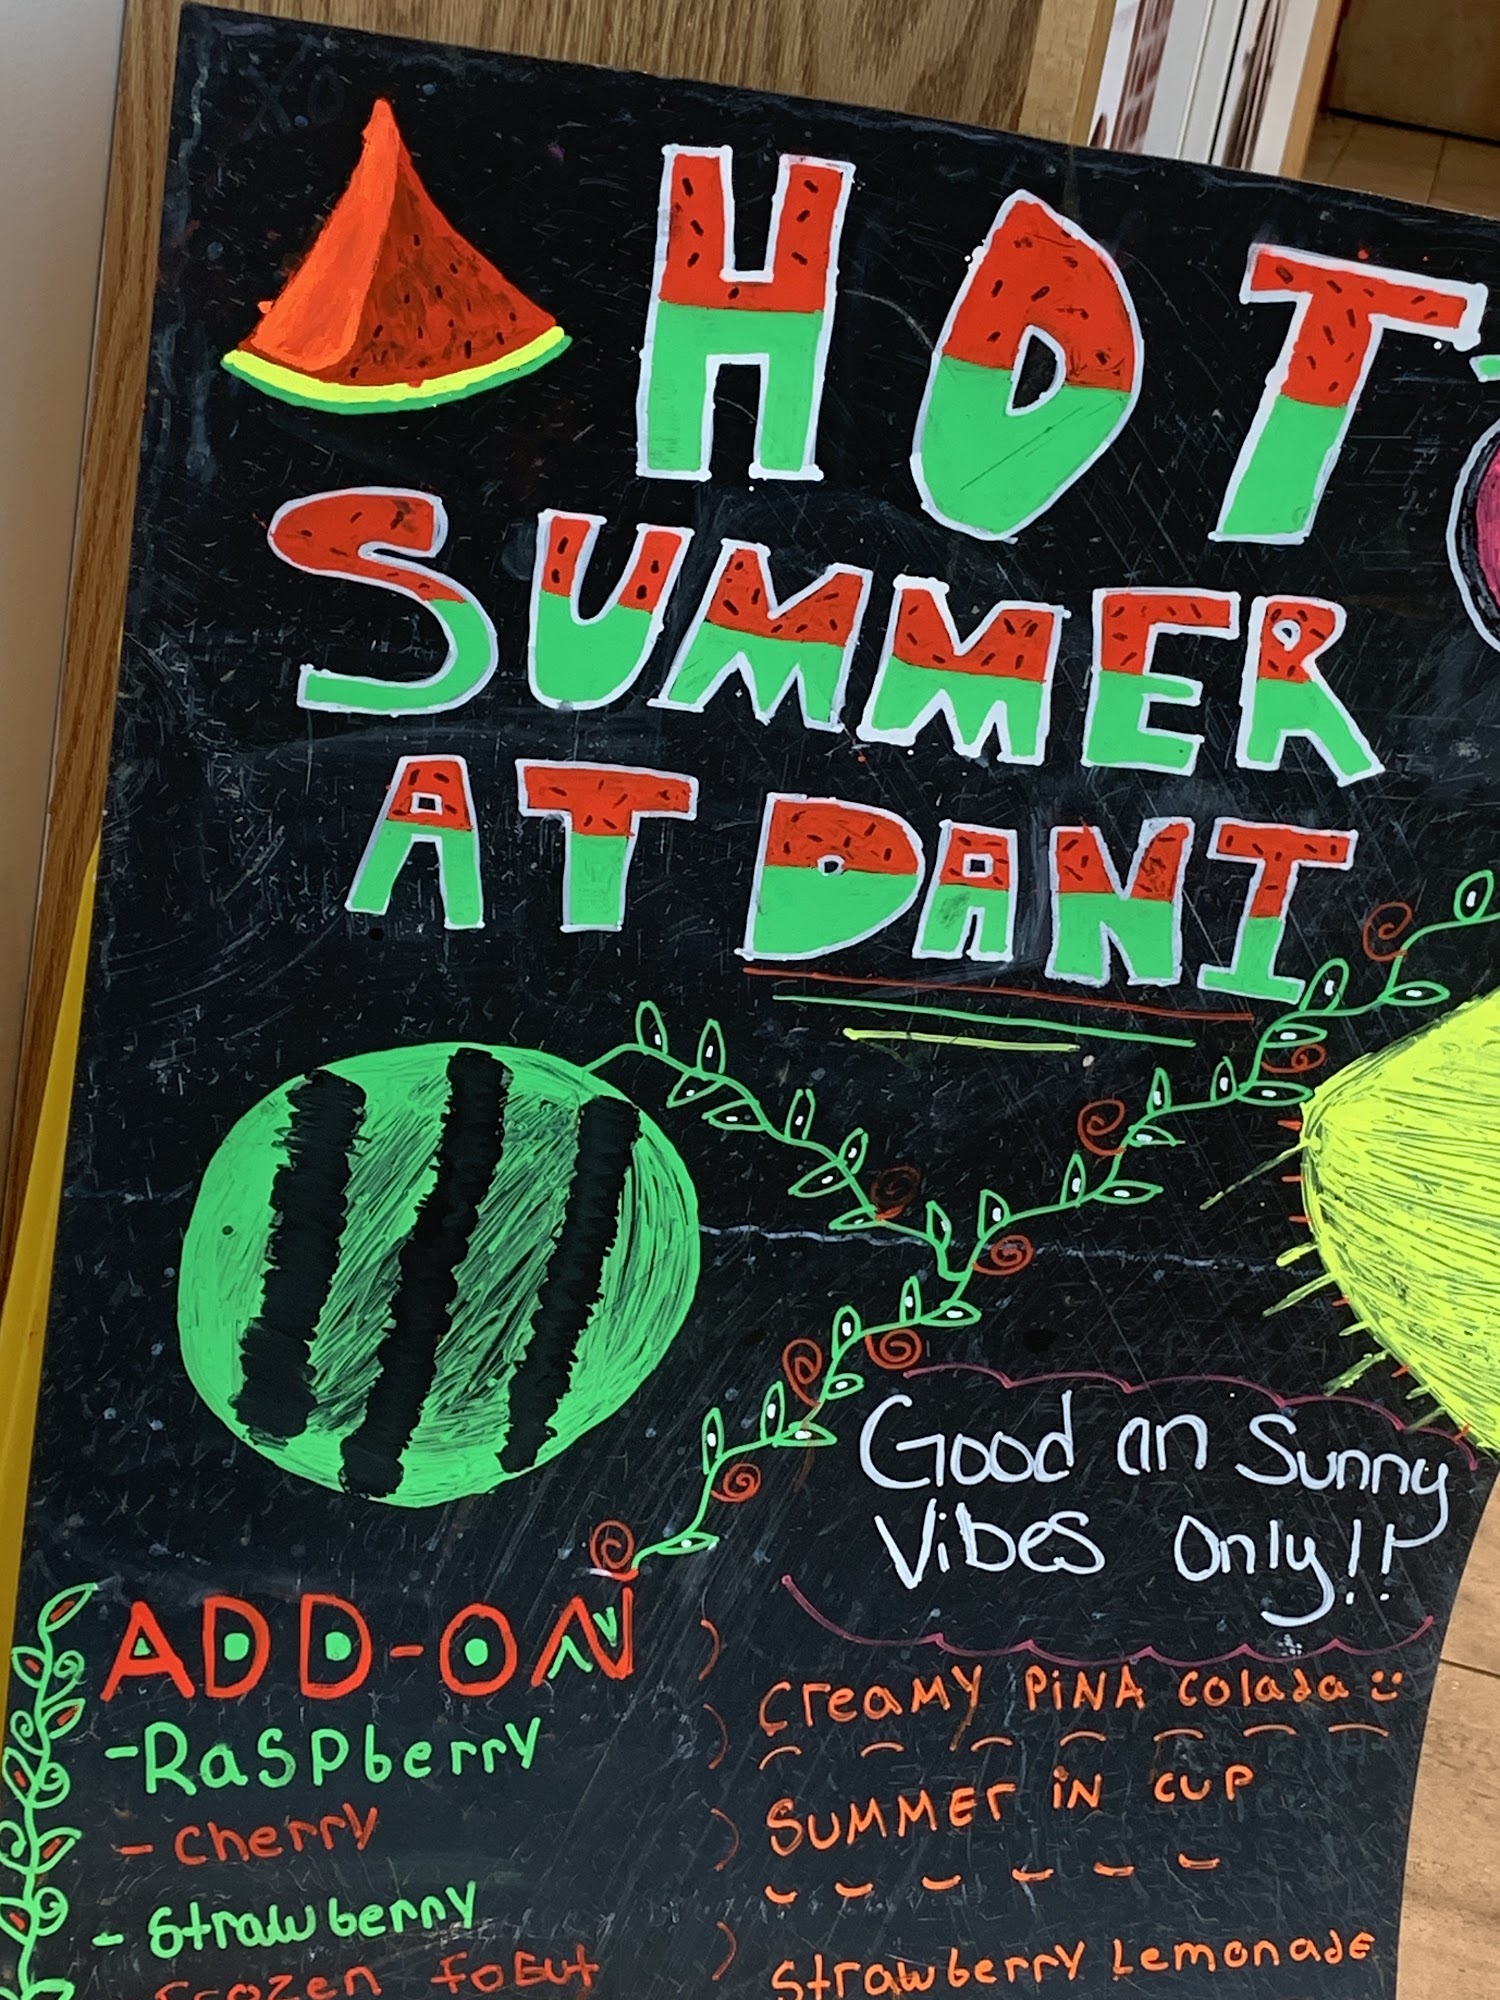 HOT
SUMMER
AT DANI
Good an Sunny
Vibes Only!!
ADD-ON
-Raspberry
- Cherry
- Strawberry
Frozen
Creamy PiNA Colada
SUMMEr iN CUP
Strawberry Lemonade